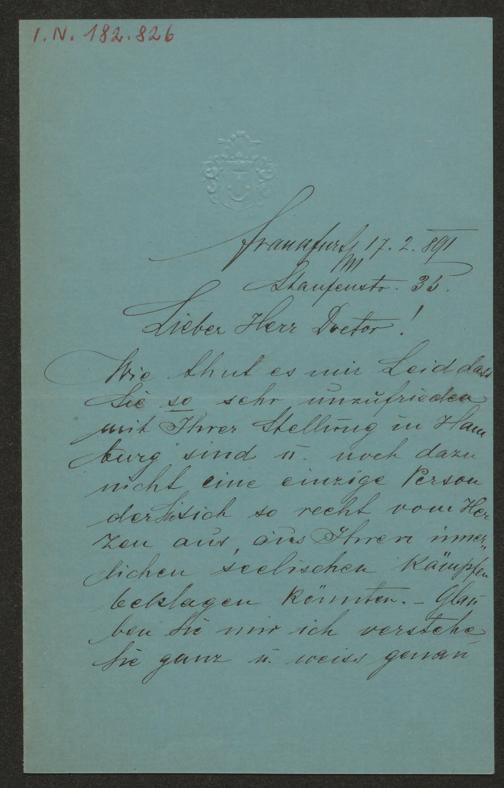 I.N. 182.826
Frankfurt 17. 2. 891
M
Staufenstr. 35.
Lieber Herr Doctor!
Wie thut es mir Leid dass
Sie so sehr unzufrieden
mit Ihrer Stellung in Ham
burg sind u. noch dazu
nicht eine einzige Person
der Sie sich so recht vom Her
zen aus, aus Ihren inner„
lichen seelischen Kämpfen
beklagen könnten. – Glau
ben Sie mir ich verstehe
Sie ganz u. weiss genau